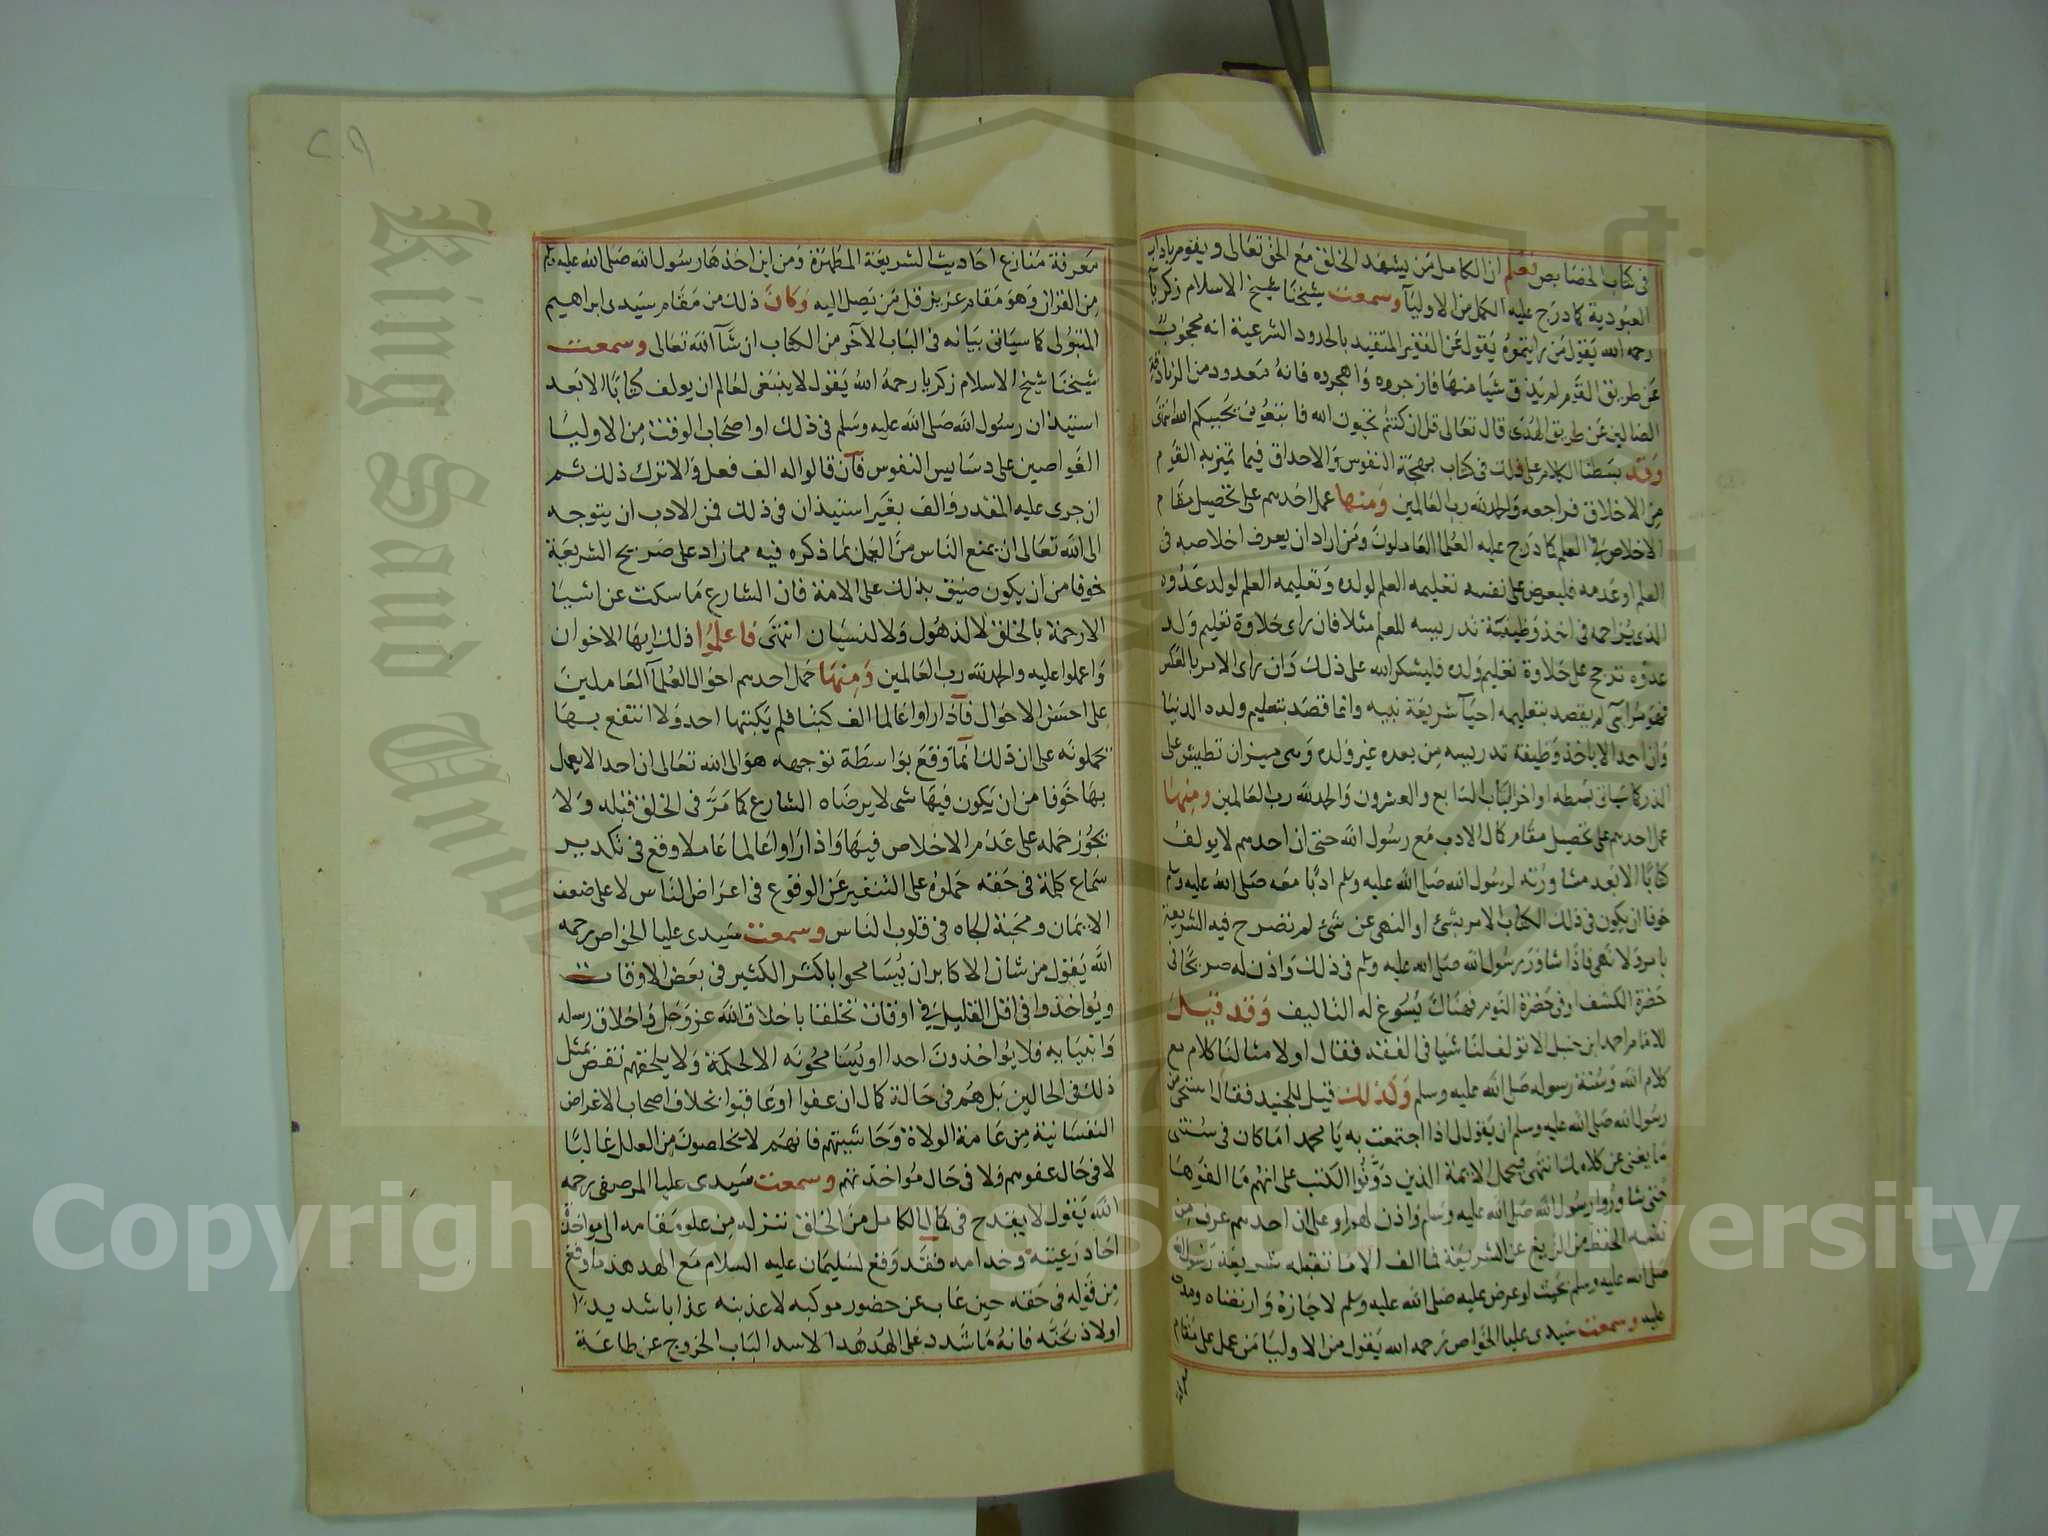 في كتاب الخصايص فعلم ان الكامل من يشهد الخلق مع الحق تعالى ويقوم باداب
العبودية كما درج عليه الكمل من الاوليآ وسمعت شيخنا شيخ الاسلام زكريا
رحمه الله يقول من رايتموه يقول عن الفقير المتقيد بالحدود الشرعية انه محجوب
عن طريق القوم لم يذق شيا منها فازجروه واهجروه فانه معدود من الزنادقة
الضالين عن طريق الهدى قال تعالى قل ان كنتم تحبون الله فاتبعوني يحببكم الله انتهى
وقد بسطنا الكلام على ذلك في كتاب بهجة النفوس والاحداق فيما تميز به القوم
من الاخلاق فراجعه والحمد لله رب العالمين ومنها عمل احدهم على تحصيل مقام
الاخلاص في العلم كما درج عليه العلما العاملون ومن اراد ان يعرف اخلاصه في
العلم او عدمه فليعرض على نفسه تعليمه العلم لولده وتعليمه العلم لولد عدوه
الذي يزاحمه في اخذ وظيفة تدريسه للعلم مثلا فان راى حلاوة تعليم ولد
عدوه ترجح على حلاوة تعليم ولده فليشكر الله على ذلك وان راى الامر بالعكس
فهو مرآى لم يقصد بتعليمه احيآ شريعة نبيه وانما قصد بتعليم ولده الدنيا
وان احدا لا ياخذ وظيفة تدريسه من بعده غير ولده وهي ميزان تطيش على
الذر كما سياتي بسطه اواخر الباب السابع والعشرون والحمد لله رب العالمين ومنها
عمل احدهم على تحصيل مقام كمال الادب مع رسول الله حتى ان احدهم لا يولف
كتابا الا بعد مشاورته لرسول الله صلى الله عليه وسلم ادبا معه صلى الله عليه وسلم
خوفا ان يكون في ذلك الكتاب الامر بشئ او النهي عن شئ لم تصرح فيه الشريعة
بامر ولا نهي فاذا شاور رسول الله صلى الله عليه وسلم في ذلك واذن له صريحا في
حضرة الكشف او في حضرة النوم فهناك يسوغ له التاليف وقد قيل
للامام احمد ابن حنبل الا تولف لنا شيا في الفقه فقال اولا مثالنا كلام مع
كلام الله وسنة رسوله صلى الله عليه وسلم وكذلك قيل للجنيد فقال استحي من
رسول الله صلى الله عليه وسلم ان يقول لي اذا اجتمعت به يا محمد اما كان في سنتي
ما يغني عن كلامك انتهى فيحمل الايمة الذين دونوا الكتب على انهم ما الفوها
حتى شاوروا رسول الله صلى الله عليه وسلم واذن لهم او على ان احدهم عرف من
نفسه الحفظ من الزيغ عن الشريعة فما الف الا ما تقبله شريعة رسول الله
صلى الله عليه وسلم بحيث لو عرض عليه صلى الله عليه وسلم لاجازه وارتضاه
عليه وسمعت سيدى عليا الخواص رحمه الله يقول من الاوليا من عمل على مقام
معرفة
معرفة منازع احاديث الشريعة المطهرة ومن اين اخذها رسول الله صلى الله عليه وسلم
من القران وهو مقام عزيز قل من يصل اليه وكان ذلك من مقام سيدى ابراهيم
المتبولى كما سياتى بيانه في الباب الآخر من الكتاب ان شآ الله تعالى وسمعت
شيخنا شيخ الاسلام زكريا رحمه الله يقول لا ينبغى لعالم ان يولف كتابا الا بعد
استيذان رسول الله صلى الله عليه وسلم في ذلك او اصحاب الوقت من الاوليا
الغواصين على دسايس النفوس فآن قالوا له الف فعل والا ترك ذلك ثم
ان جرى عليه المقدر والف بغير استيذان في ذلك فمن الادب ان يتوجه
الى الله تعالى ان يمنع الناس من العمل بما ذكره فيه مما زاد على صريح الشريعة
خوفا من ان يكون ضيق بذلك على الامة فان الشارع ما سكت عن اشيا
الا رحمة بالخلق لا لذهول ولا لنسيان انتهى فاعلموا ذلك ايها الاخوان
واعملوا عليه والحمد لله رب العالمين ومنها حمل احدهم احوال العلمآ العاملين
على احسن الاحوال فآذا راوا عالما الف كتبا فلم يكتبها احد ولا انتفع بها
تحملونه على ان ذلك انما وقع بواسطة توجهه هو الى الله تعالى ان احدا لا يعمل
بها خوفا من ان يكون فيها شى لا يرضاه الشارع كما مر في الخلق قبله ولا
يجوز حمله على عدم الاخلاص فيها واذا راوا عالما عاملا وقع في تكدير
سماع كلمة في حقه حملوه على التنفير عن الوقوع في اعراض الناس لا على ضعف
الايمان ومحبة الجاه في قلوب الناس وسمعت سيدى عليا الخواص رحمه
الله يقول من شان الاكابر ان يسامحوا باكثر الكثير في بعض الاوقات
ويواخذوا في اقل القليل في اوقات تخلقا باخلاق الله عز وجل واخلاق رسله
وانبيا به فلا يواخذون احدا او يسامحونه الا لحكمة ولا يلحقهم نقص بمثل
ذلك في الحالين بل هم في حالة كمال ان عفوا او عاقبوا بخلاف اصحاب الاغراض
النفسانية من عامة الولاة وحاشيتهم فانهم لا يخلصون من العلل غالبا
لا في حال عفوهم ولا في حال مواخذتهم وسمعت سيدى عليا المرصفى رحمه
الله يقول لا يقدح في كمال الكامل من الخلق تنزله من علو مقامه الى مواخذة
احاد رعيته وخدامه فقد وقع لسليمان عليه السلام مع الهدهد ما وقع
من قوله في حقه حين غاب عن حضور موكبه لاعذبنه عذابا شديدا
اولاذبحنه فانه ما شدد على الهدهد الا لسد الباب الخروج عن طاعة
Copyright © King Saud University
King Saud University